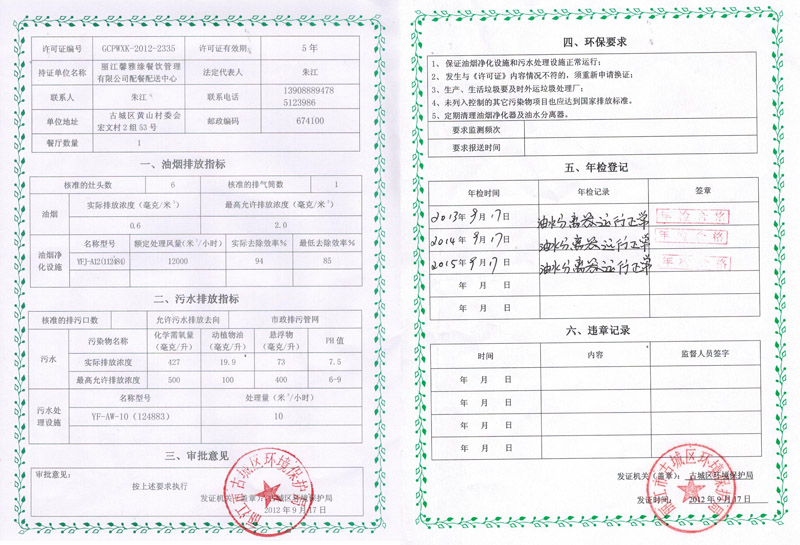 许可证编号 GCPWXK-2012-2335 许可证有效期 5 年
持证单位名称 丽江馨雅缘餐饮管理有限公司配餐配送中心 法定代表人 朱江
联系人 朱江 联系电话 13908889478 5123986
单位地址 古城区黄山村委会宏文村2组53号 邮政编码 674100
餐厅数量 1
一、油烟排放指标
核准的灶头数 6 核准的排气筒数 1
油烟 实际排放浓度（毫克/米³） 最高允许排放浓度（毫克/米³）
0.6 2.0
油烟净化设施 名称型号 额定处理风量(米³/小时) 实际去除效率% 最低去除效率%
12000 94 85
二、污水排放指标
核准的排污口数 1 允许污水排放去向 市政排污管网
污水 污染物名称 化学需氧量（毫克/升） 动植物油（毫克/升） 悬浮物（毫克/升） PH 值
实际排放浓度 427 19.9 73 7.5
最高允许排放浓度 500 100 400 6-9
污水处理设施 名称型号 处理量（米³/小时）
YF-AW-10（124883） 10
三、审批意见
审批意见：
按上述要求执行
发证机关（盖章）：古城区环境保护局
2012 年 9 月 17 日
丽江市古城区环境保护局
四、环保要求
1、保证油烟净化设施和污水处理设施正常运行；
2、发生与《许可证》内容情况不符的，须重新申请换证；
3、生产、生活垃圾要及时外运垃圾处理厂；
4、未列入控制的其它污染物项目也应达到国家排放标准。
5、定期清理油烟净化器及油水分离器。
要求监测频次
要求报送时间
五、年检登记
年检时间 年检记录 签章
2013年 9月 17日 油水分离器运行正常 年检合格
2014年 9月 17日 油水分离器运行正常 年检合格
2015年 9月 17日 油水分离器运行正常 年检合格
年 月 日
年 月 日
六、违章记录
时间 内容 监督人员签字
年 月 日
年 月 日
年 月 日
年 月 日
发证机关（盖章）： 古城区环境保护局
发证时间： 2012 年 9 月 17 日
丽江市古城区环境保护局